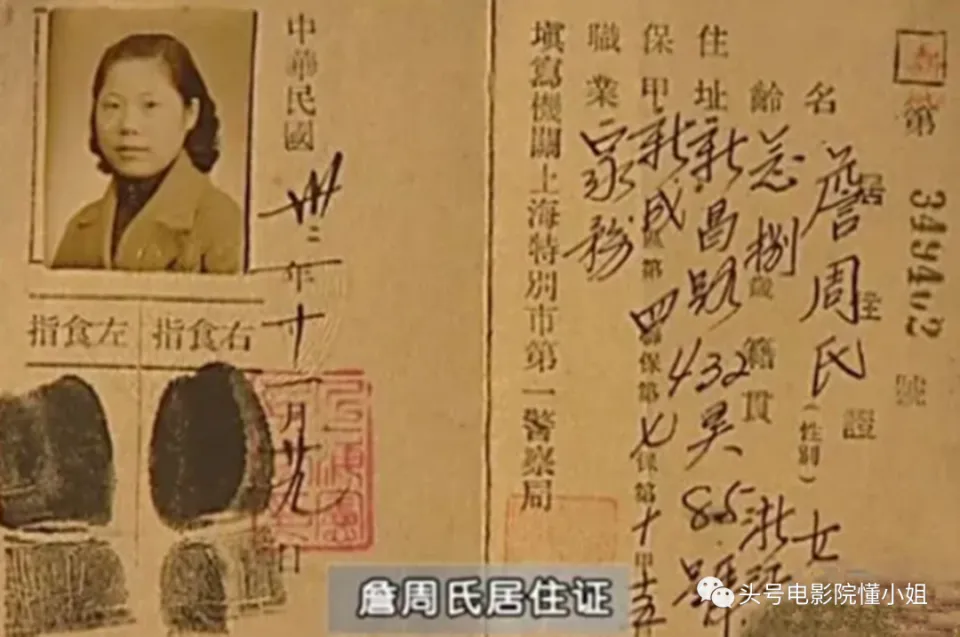 第 349402 號
居住證
名 詹周氏 (性別) 女
齡 念捌歲 籍貫 浙江
住址 新昌路432弄85號
保甲 新成區第四聯保第七保第十甲十五
職業 家務
填寫機關上海特別市第一警察局
中華民國卅二年十一月廿九日
右食指
左食指
詹周氏居住证
头号电影院懂小姐